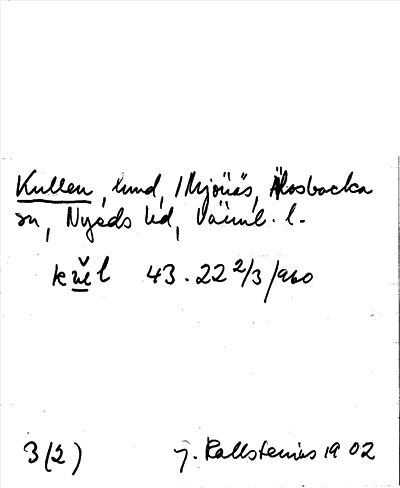 Kullen, lund, Mjönäs, Älvsbacka
sn, Nyeds hd, Värml. l.
kŭl 43.22 2/3/960
3(2) J. Kallstenius 1902